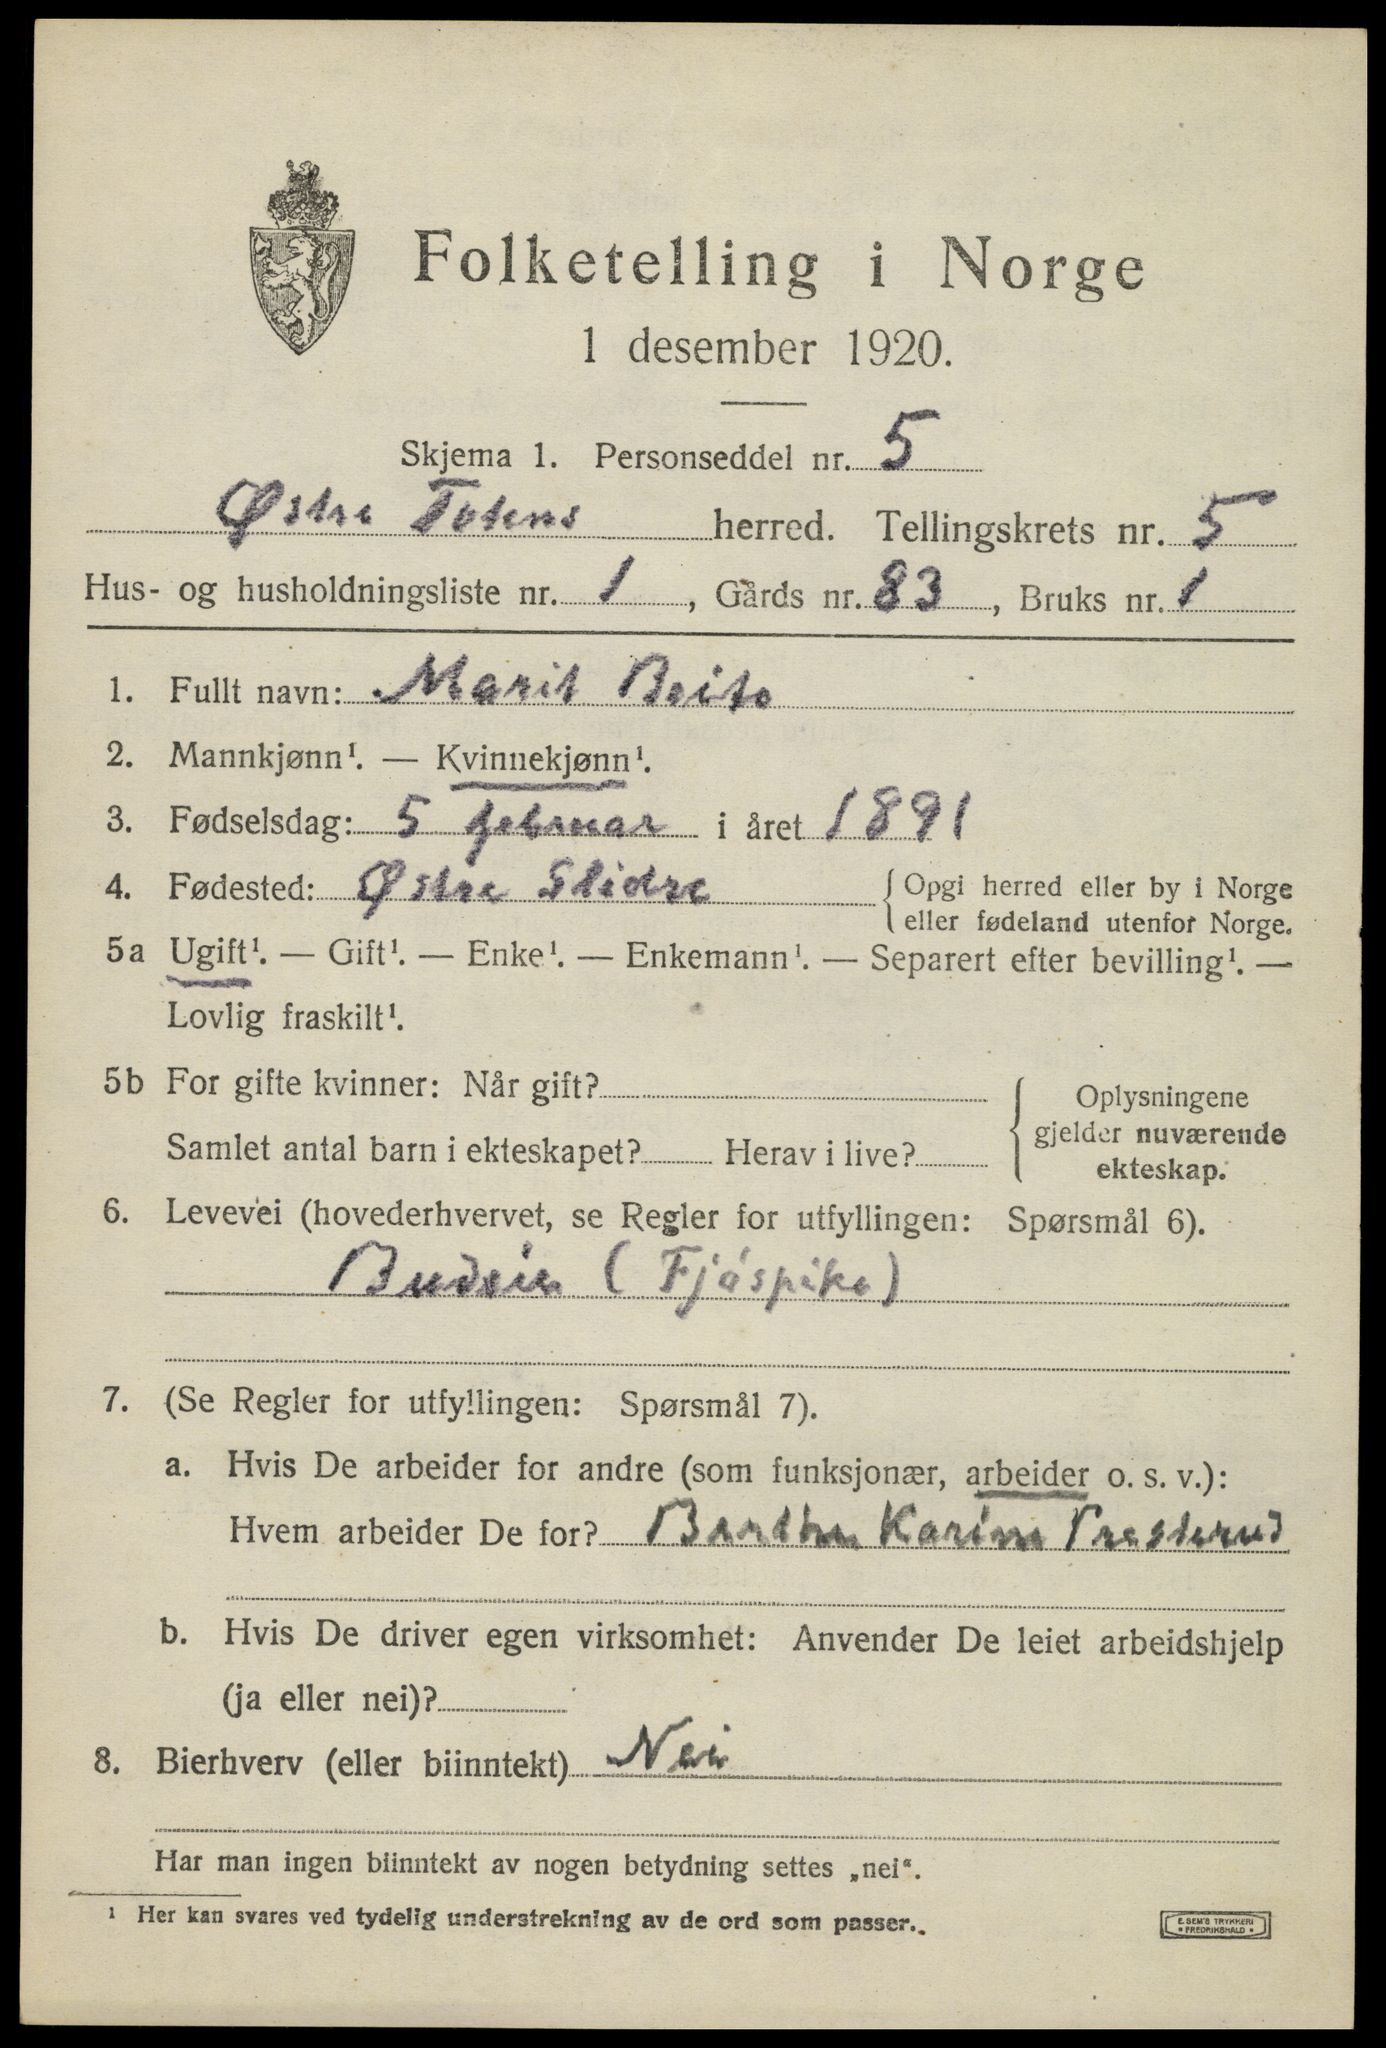 Folketelling i Norge
1 desember 1920.
Skjema 1. Personseddel nr. 5
Østre Totens herred. Tellingskrets nr. 5
Hus- og husholdningsliste nr. 1, Gårds nr. 83, Bruks nr. 1
1. Fullt navn: Marit Beito
2. Mannkjønn¹. — Kvinnekjønn¹.
3. Fødselsdag: 5 februar i året 1891
4. Fødested: Østre Slidre { Opgi herred eller by i Norge
eller fødeland utenfor Norge.
5a Ugift¹. — Gift¹. — Enke¹. — Enkemann¹. — Separert efter bevilling¹. —
Lovlig fraskilt¹.
5b For gifte kvinner: Når gift?
Samlet antal barn i ekteskapet? Herav i live?
{ Oplysningene
gjelder nuværende
ekteskap.
6. Levevei (hovederhvervet, se Regler for utfyllingen: Spørsmål 6).
Budeie (Fjøspike)
7. (Se Regler for utfyllingen: Spørsmål 7).
a. Hvis De arbeider for andre (som funksjonær, arbeider o. s. v.):
Hvem arbeider De for? Berthe Karine Presterud
b. Hvis De driver egen virksomhet: Anvender De leiet arbeidshjelp
(ja eller nei)?
8. Bierhverv (eller biinntekt) Nei
Har man ingen biinntekt av nogen betydning settes „nei“.
¹ Her kan svares ved tydelig understrekning av de ord som passer.
E. SEM'S TRYKKERI
FREDRIKSHALD